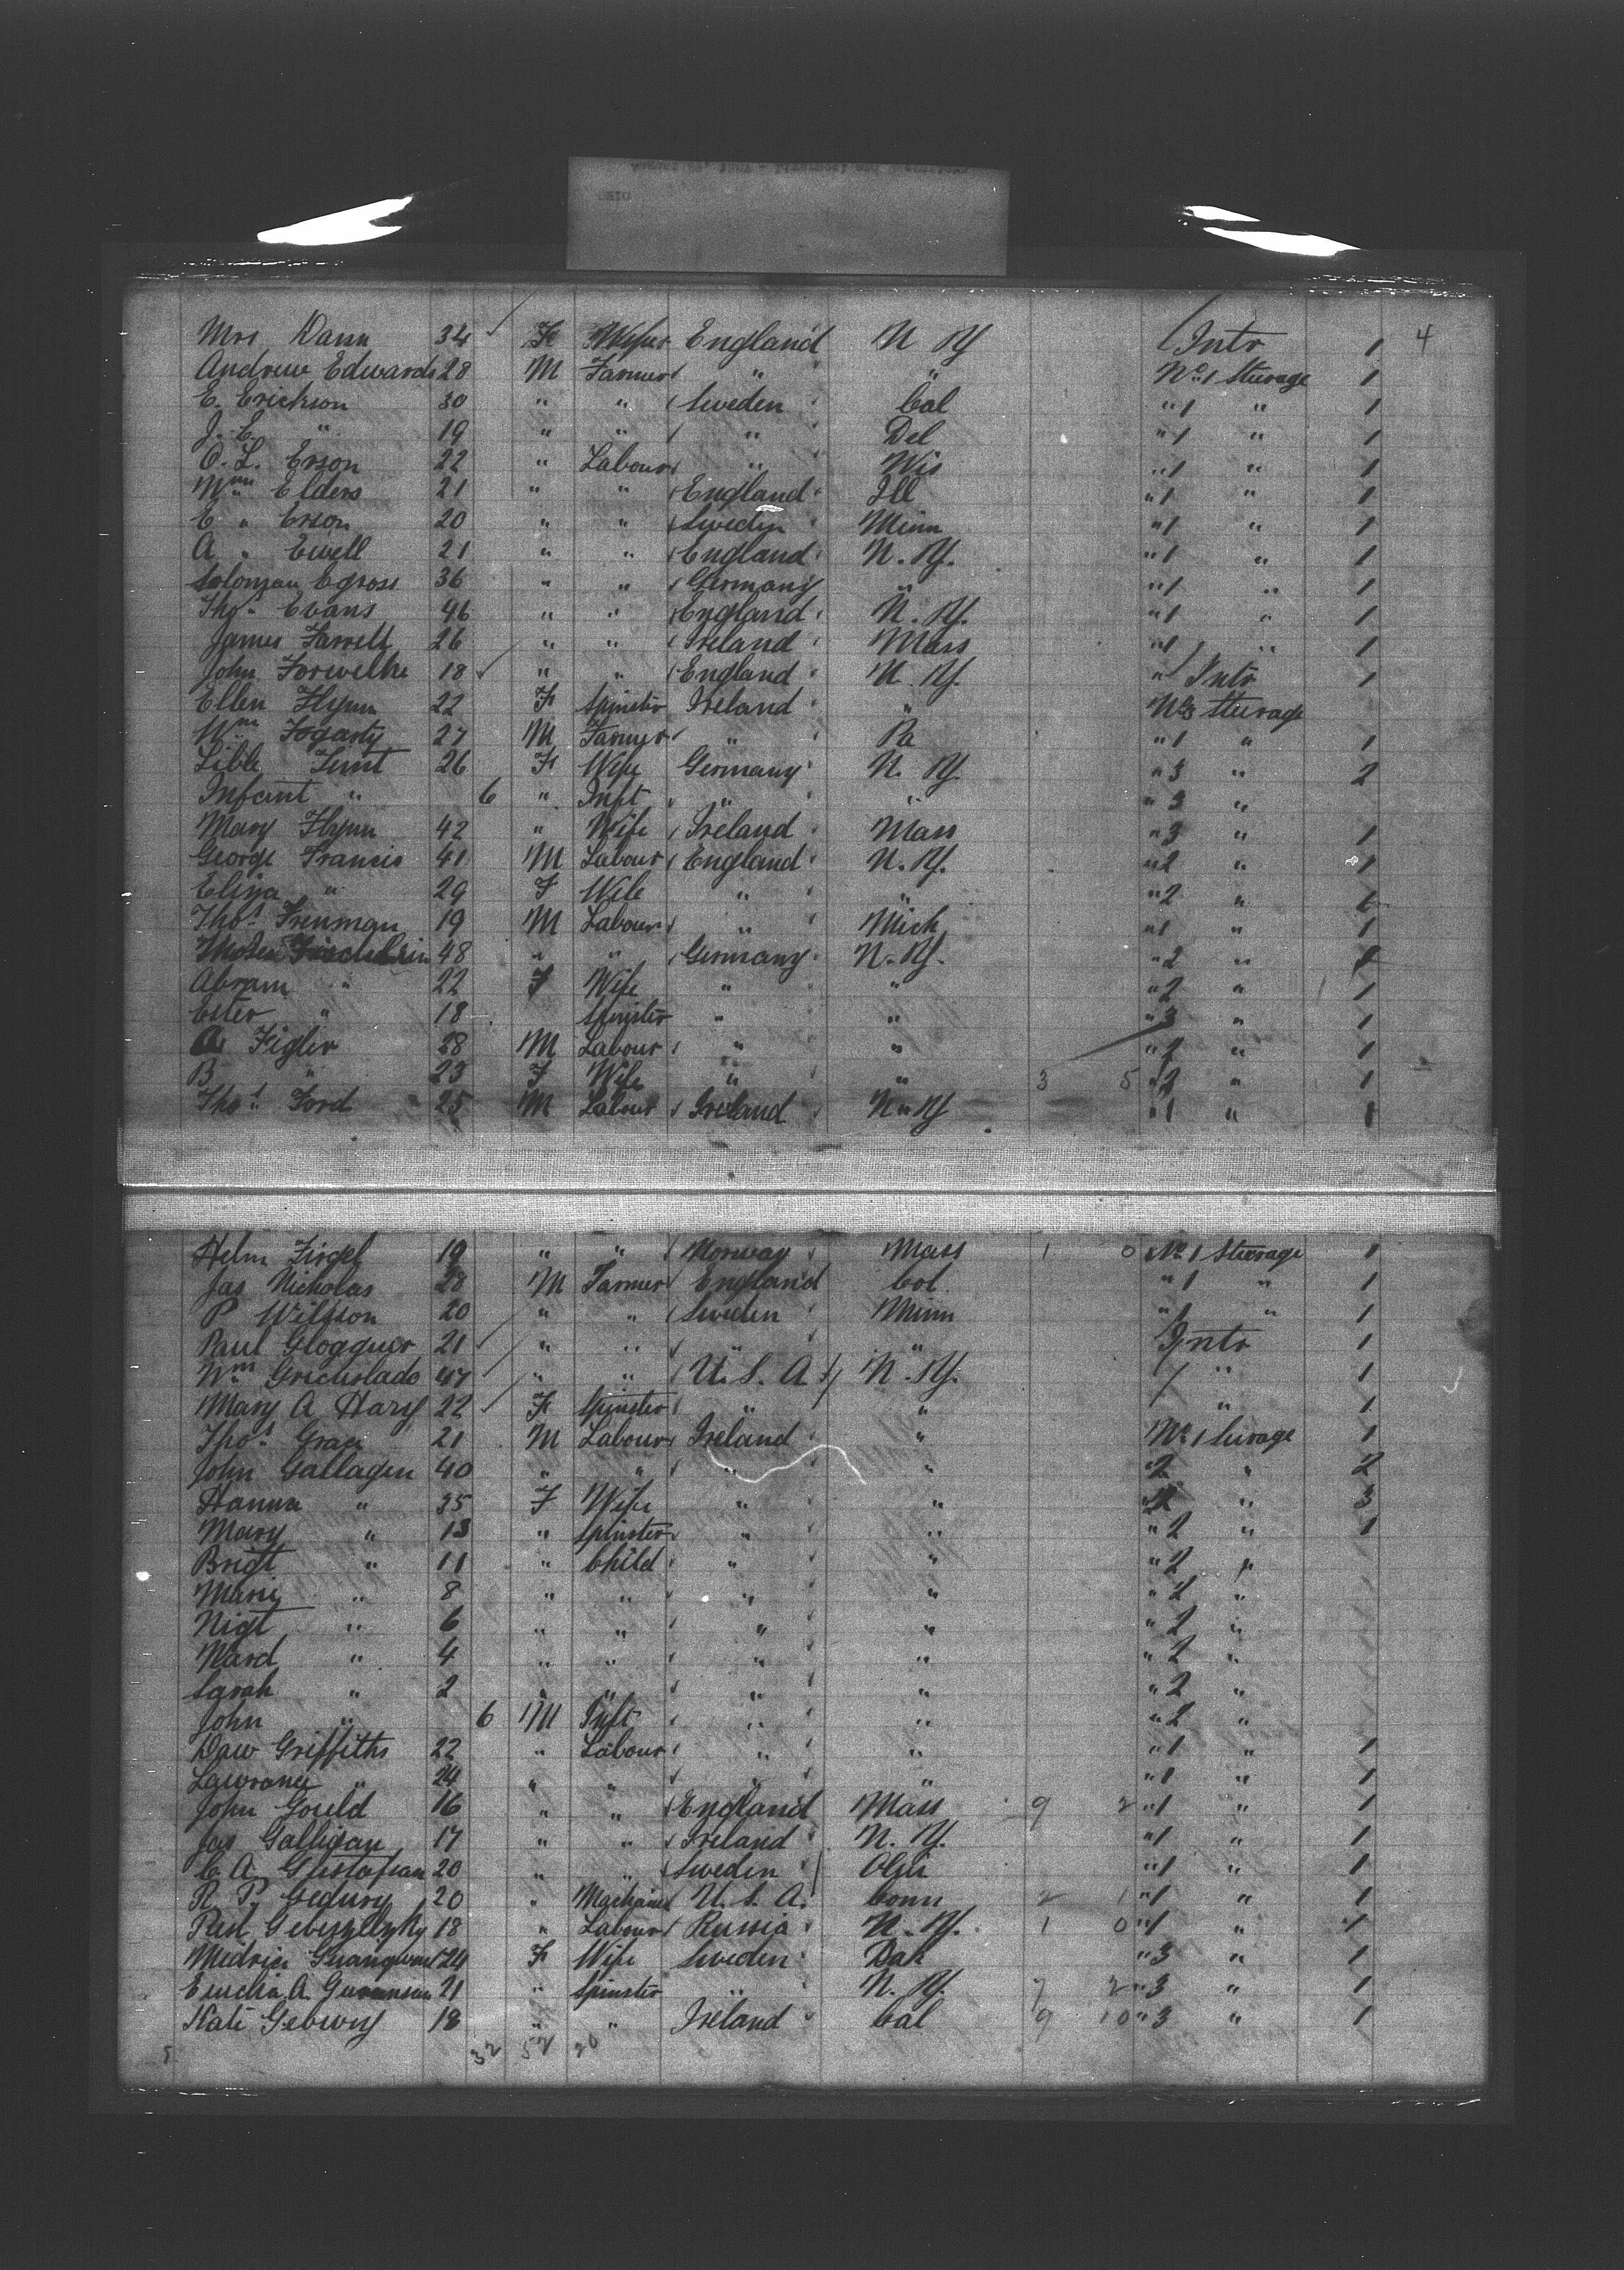 Mrs Dann 34 F Wife England N Y Intr 1 4
Andrew Edwards 28 M Farmer " " No. 1 Steerage 1
E. Erickson 30 " " Sweden Cal " 1 " 1
J. E. " 19 " " " Del " 1 " 1
O. L. Erson 22 " Labour " Wis " 1 " 1
Wm Elders 21 " " England Ill " 1 " 1
E " Erson 20 " " Sweden Minn " 1 " 1
A " Ewell 21 " " England N. Y. " 1 " 1
Soloman Egross 36 " " Germany " " 1 " 1
Thos Evans 46 " " England N. Y. " 1 " 1
James Farrell 26 " " Ireland Mass " 1 " 1
John 18 " " England N. Y. " Intr 1
Ellen Flynn 22 F Spinster Ireland " No 3 Steerage
Wm Fogarty 27 M Farmer " Pa " 1 " 1
26 F Wife Germany N. Y. " 3 " 2
Infant " 6 " Inft " " " 3 "
Mary Flynn 42 " Wife Ireland Mass " 3 " 1
George Francis 41 M Labour England N. Y. " 2 " 1
Eliza " 29 F Wife " " " 2 " 1
Thos Frenman 19 M Labour " Mich " 1 " 1
48 " " Germany N. Y. " 2 " 1
Abram " 22 F Wife " " " 2 " 1
Ester " 18 Spinster " " " 3 " 1
A Figler 28 M Labour " " " 2 " 1
B " 23 F Wife " " 3 5 " 2 " 1
Thos Ford 25 M Labour Ireland N. Y " 1 " 1
Helm 19 " " Norway Mass 1 0 No. 1 Steerage 1
Jas Nicholas 28 M Farmer England Col " 1 " 1
P Wilsson 20 " " Sweden Minn " 1 " 1
Paul Glogguer 21 " " " " Intr 1
Wm 47 " " U. S. A. N. Y. " 1
Mary A Hary 22 F Spinster " " " 1
Thos Grace 21 M Labour Ireland " No. 1 Steerage 1
John Gallagen 40 " " " " " 2 " 2
Hanna " 35 F Wife " " " 2 " 3
Mary " 13 " Spinster " " " 2 " 1
Brigt " 11 " Child " " " 2 "
Marie " 8 " " " " " 2 "
Nigt " 6 " " " " " 2 "
Ward " 4 " " " " " 2 "
Sarah " 2 " " " " " 2 "
John " 6 M Inft " " " 2 "
Daw Griffiths 22 " Labour " " " 1 " 1
Lawrance " 24 " " " " " 1 " 1
John Gould 16 " " England Mass 9 2 " 1 " 1
Jas Galligan 17 " " Ireland N. Y. " 1 " 1
C. A. Gustafson 20 " " Sweden " 1 " 1
R. P. 20 " U. S. A. Conn 2 1 " 1 " 1
18 " Labour Russia N. Y. 1 0 " 1 " 1
24 F Wife Sweden Dak " 3 " 1
A. 21 " Spinster " N. Y. 7 2 " 3 " 1
Kate 18 " " Ireland Cal 9 10 " 3 " 1
32 52 20